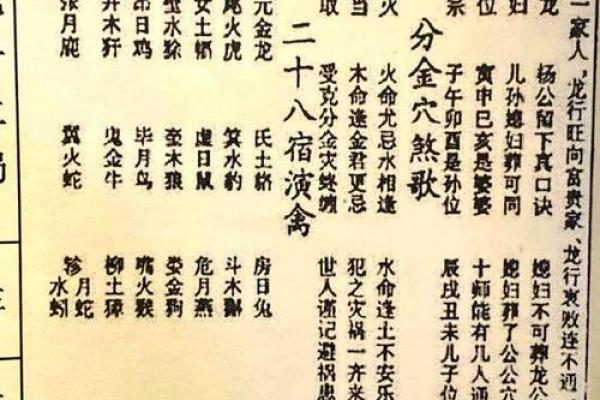 一家人,龙行旺向富贵家、龙行衰败连不通
龙 杨公留下真口诀 媳妇不可葬龙公
妇 儿孙媳妇葬可同 媳妇葬了公公穴
位 寅申巳亥是婆婆 十师能有几人通
宗 子午卯酉是孙位 辰戌丑未儿子位
分金穴煞歌
火 火命尤忌水相逢 水命逢土不安乐
当 木命逢金君更忌 犯之灾祸一齐来
取 受克分金灾终缠 世人谨记避祸患
二十八宿演禽
元金龙 氐土貉 房日兔
尾火虎 箕水豹 斗木獬
女土蝠 虚日鼠 危月燕
壁水狳 奎木狼 娄金狗
昴日鸡 毕月乌 嘴火猴
井木犴 鬼金牛 柳土獐
张月鹿 翼火蛇 轸月蛇
水蚓